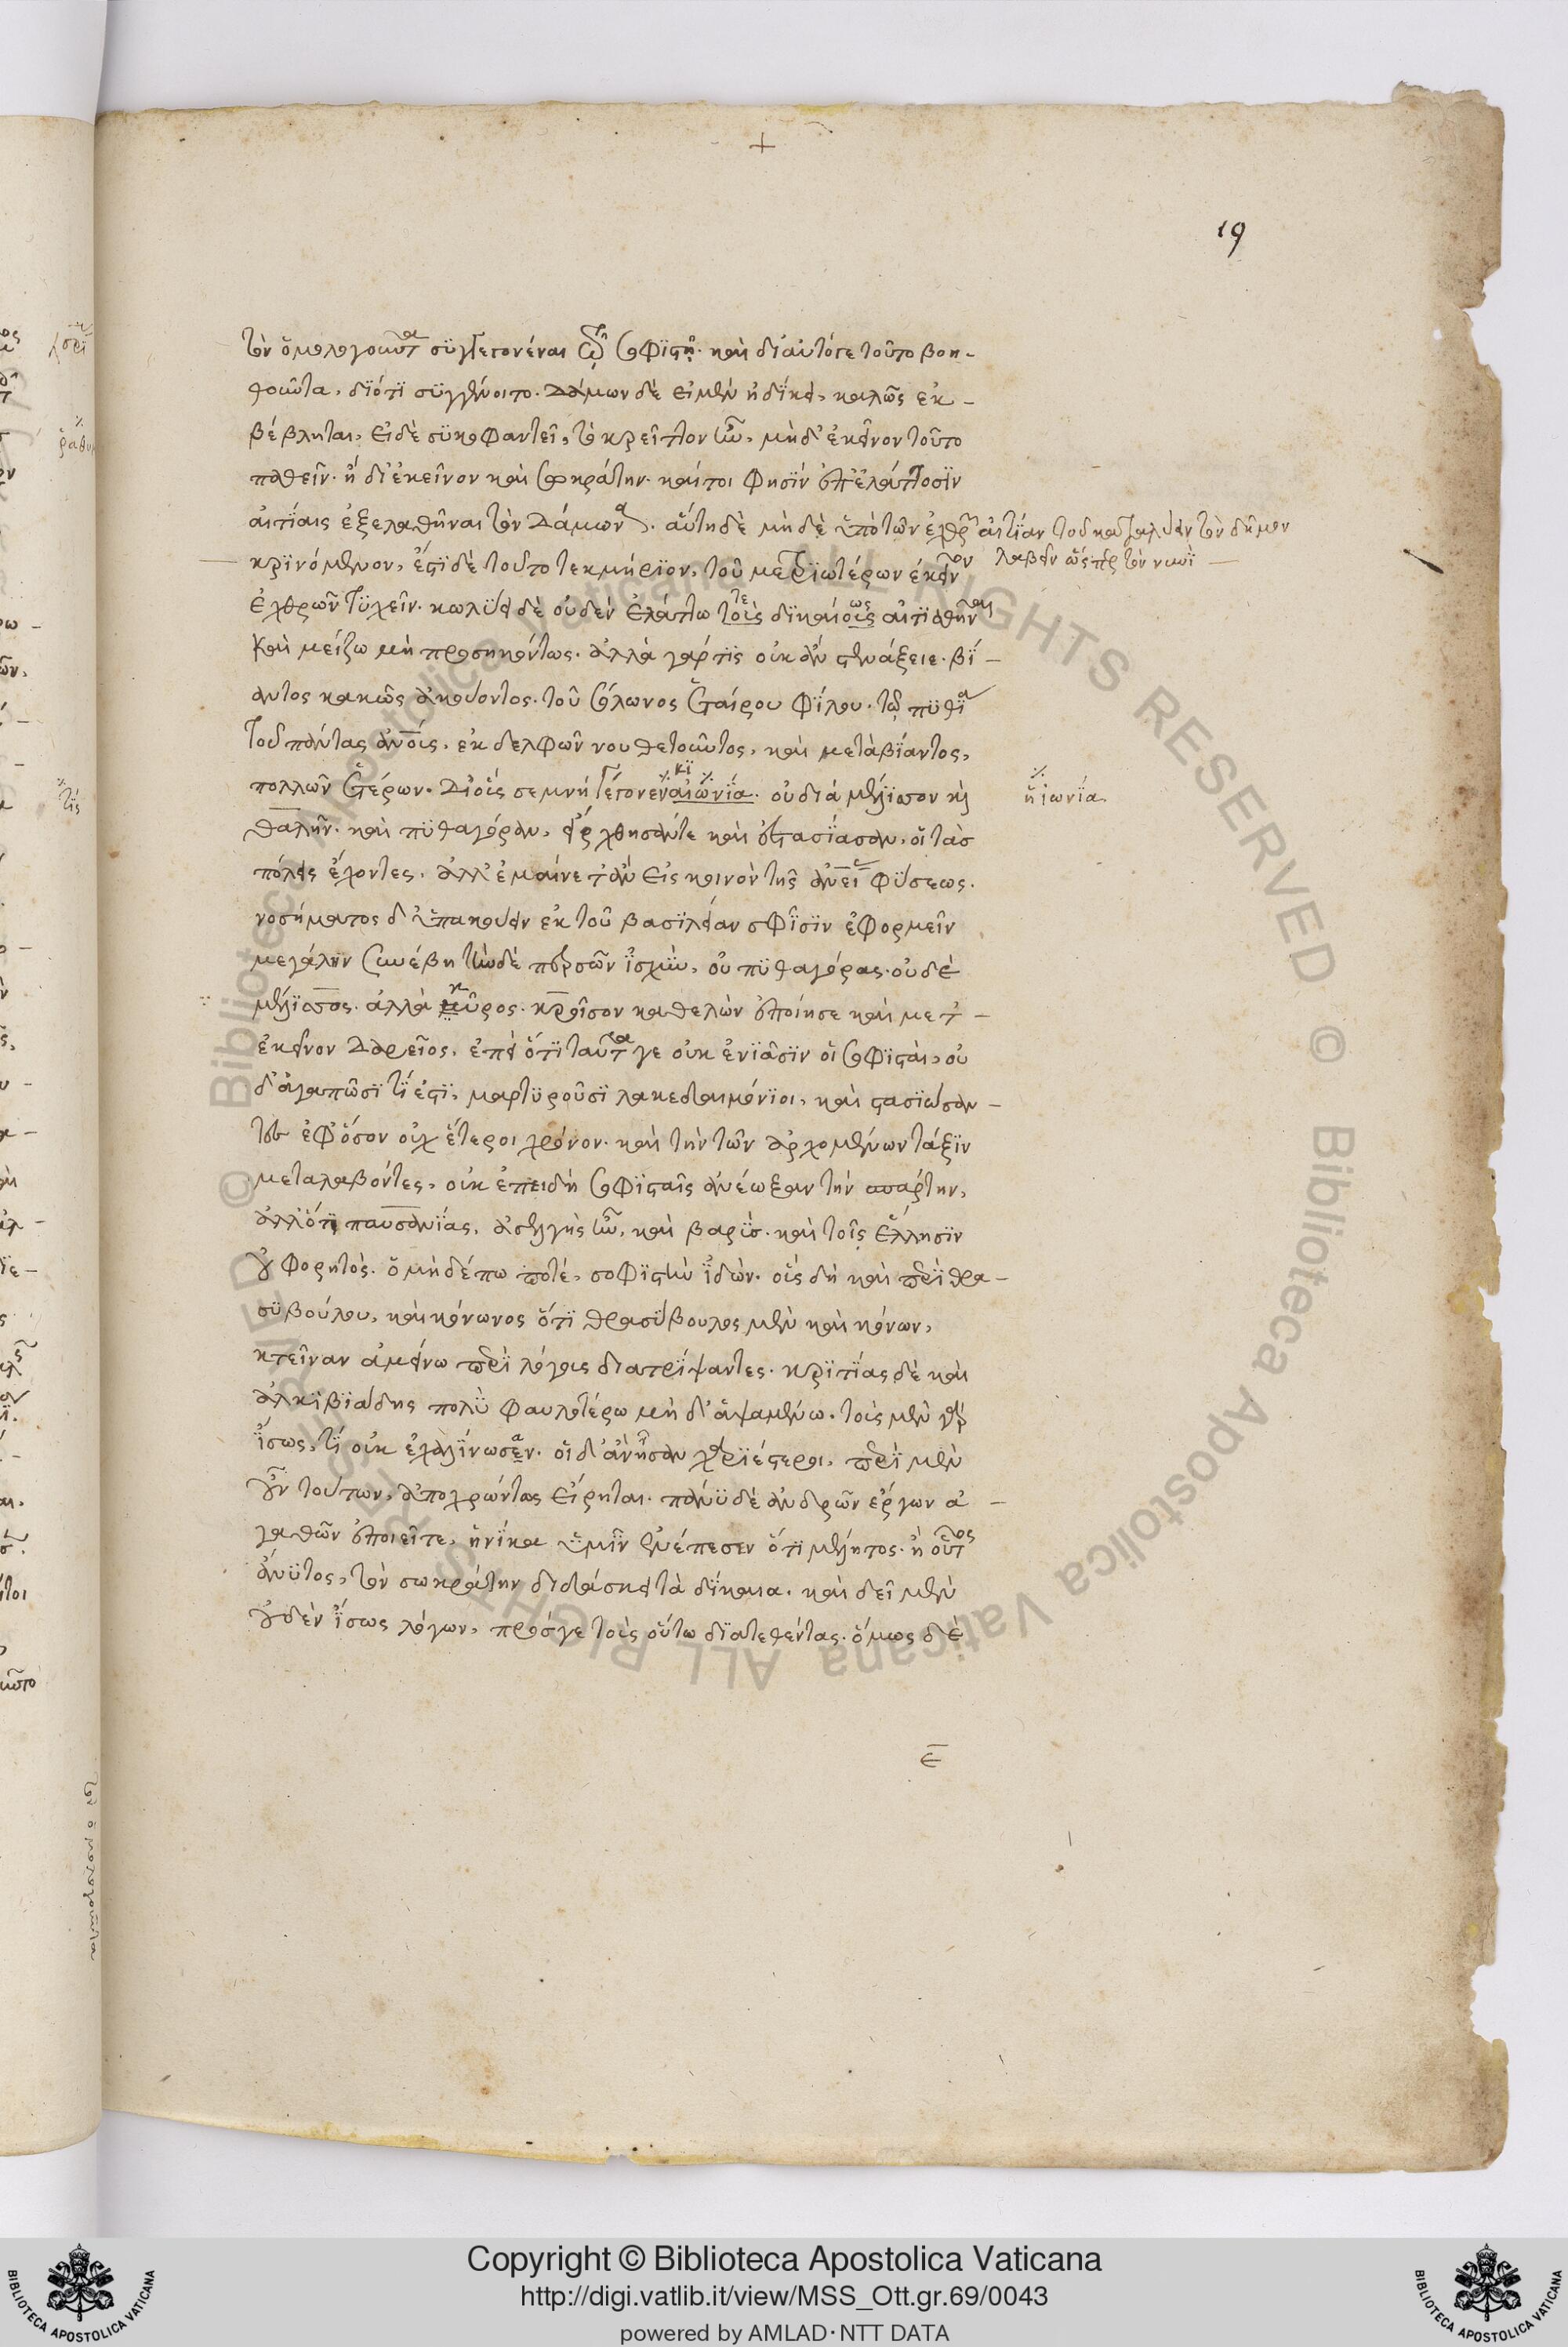 19
τὸν ὁμολογοῦντα συγγεγονέναι τῷ σοφιστῇ. καὶ δι' αὐτό γε τοῦτο βοη-
θοῦντα, διότι συγγένοιτο. Δάμων δὲ εἰ μὲν ἠδίκει, καλῶς ἐκ-
βέβληται, εἰ δὲ συκοφαντεῖ, τὸ κρεῖττον ἦν, μηδ' ἐκεῖνον τοῦτο
παθεῖν. ἢ δι' ἐκεῖνον καὶ Σωκράτην. καίτοι φησὶν ἐπ' ἐλάττοσιν
αἰτίαις ἐξελαθῆναι τὸν Δάμωνα. αὕτη δὲ μηδὲ ὑπὸ τῶν ἐχθρῶν αἰτίαν τοῦ καταλύειν τὸν δῆμον
λαβεῖν ὥσπερ τὸν νυνὶ
κρινόμενον, ἔστι δὲ τοῦτο τεκμήριον, τοῦ μετριωτέρων ἐκεῖνον
ἐχθρῶν τυχεῖν. κωλύει δὲ οὐδὲν ἐλάττω τοῖς δικαίοις αἰτιαθῆναι
καὶ μείζω μὴ προσηκόντως. ἀλλὰ γάρ τις οὐκ ἂν στενάξειε. βί-
αντος κακῶς ἀκούοντος. τοῦ Σόλωνος ἑταίρου φίλου. τῷ πυθία
τοῦ πάντας ἀνους. ἐκ δελφῶν νουθετοῦντος, καὶ μετὰ βίαντος,
πολλῶν ἑτέρων. Δι' οὓς σεμνὴ γέγονεν αἰωνία. οὐ διὰ μέλισσον καὶ
ἡ ἰωνία
θαλῆν. καὶ πυθαγόραν, εἴρχθησάν τε καὶ ἐστασίασαν. οἱ τὰς
πόλεις ἔχοντες. ἀλλ' ἔμαινετ' ἂν εἰς κοινὸν τῆς ἀνείας φύσεως.
νοσήματος δ' ὑπακούειν ἐκ τοῦ βασιλείαν σφίσιν ἐφορμεῖν
μεγάλην συνέβη τὴν δὲ περσῶν ἰσχὺν, οὐ πυθαγόρας. οὐδὲ
μέλισσος. ἀλλὰ κῦρος. κροῖσον καθελὼν ἐποίησε καὶ μετ'-
ἐκεῖνον Δαρεῖος. ἐπεὶ ὅτι ταῦτα γε οὐκ ἐνιᾶσιν οἱ σοφισταί, οὐ
δ' ἀγαπῶσι τί ἐστι, μαρτυροῦσι λακεδαιμόνιοι, καὶ στασιάσαν-
τες ἐφ' ὅσον οὐχ ἕτεροι χρόνον. καὶ τὴν τῶν ἀρχομένων τάξιν
μεταλαβόντες, οὐκ ἐπειδὴ σοφισταῖς ἀνέωξαν τὴν σπάρτην,
ἀλλ' ὅτι παυσανίας, ἀσελγὴς ἦν, καὶ βαρὺς. καὶ τοῖς ἕλλησιν
οὐ φορητὸς. ὁ μηδέπω ποτέ, σοφιστὴν ἰδών. οἷς δὴ καὶ περὶ θρα-
συβούλου, καὶ κόνωνος ὅτι θρασύβουλος μὲν καὶ κόνων,
κτεῖναν ἀμείνω περὶ λόγους διατρίψαντες. κριτίας δὲ καὶ
ἀλκιβιάδης πολὺ φαυλοτέρω μὴ δ' ἁψαμένω. τοὺς μὲν γὰρ
ἴσως, τί οὐκ ἐχαλίνωσαν. οἱ δ' ἂν ἦσαν χαριέστεροι, περὶ μὲν
οὖν τούτων, ἀποχρώντως εἴρηται. πάνυ δὲ ἀνδρῶν ἔργων ἀ-
γαθῶν ἐποιεῖτε, ἡνίκα ὑμῖν ἐνέπεσεν ὅτι μέλητος. ἢ οὗτος
ἄνυτος, τὸν σωκράτην διδάσκει τὰ δίκαια. καὶ δεῖ μὲν
οὐδὲν ἴσως λόγων, πρός γε τοὺς οὕτω διατεθέντας. ὅμως δὲ
ε
Copyright © Biblioteca Apostolica Vaticana
http://digi.vatlib.it/view/MSS_Ott.gr.69/0043
powered by AMLAD·NTT DATA